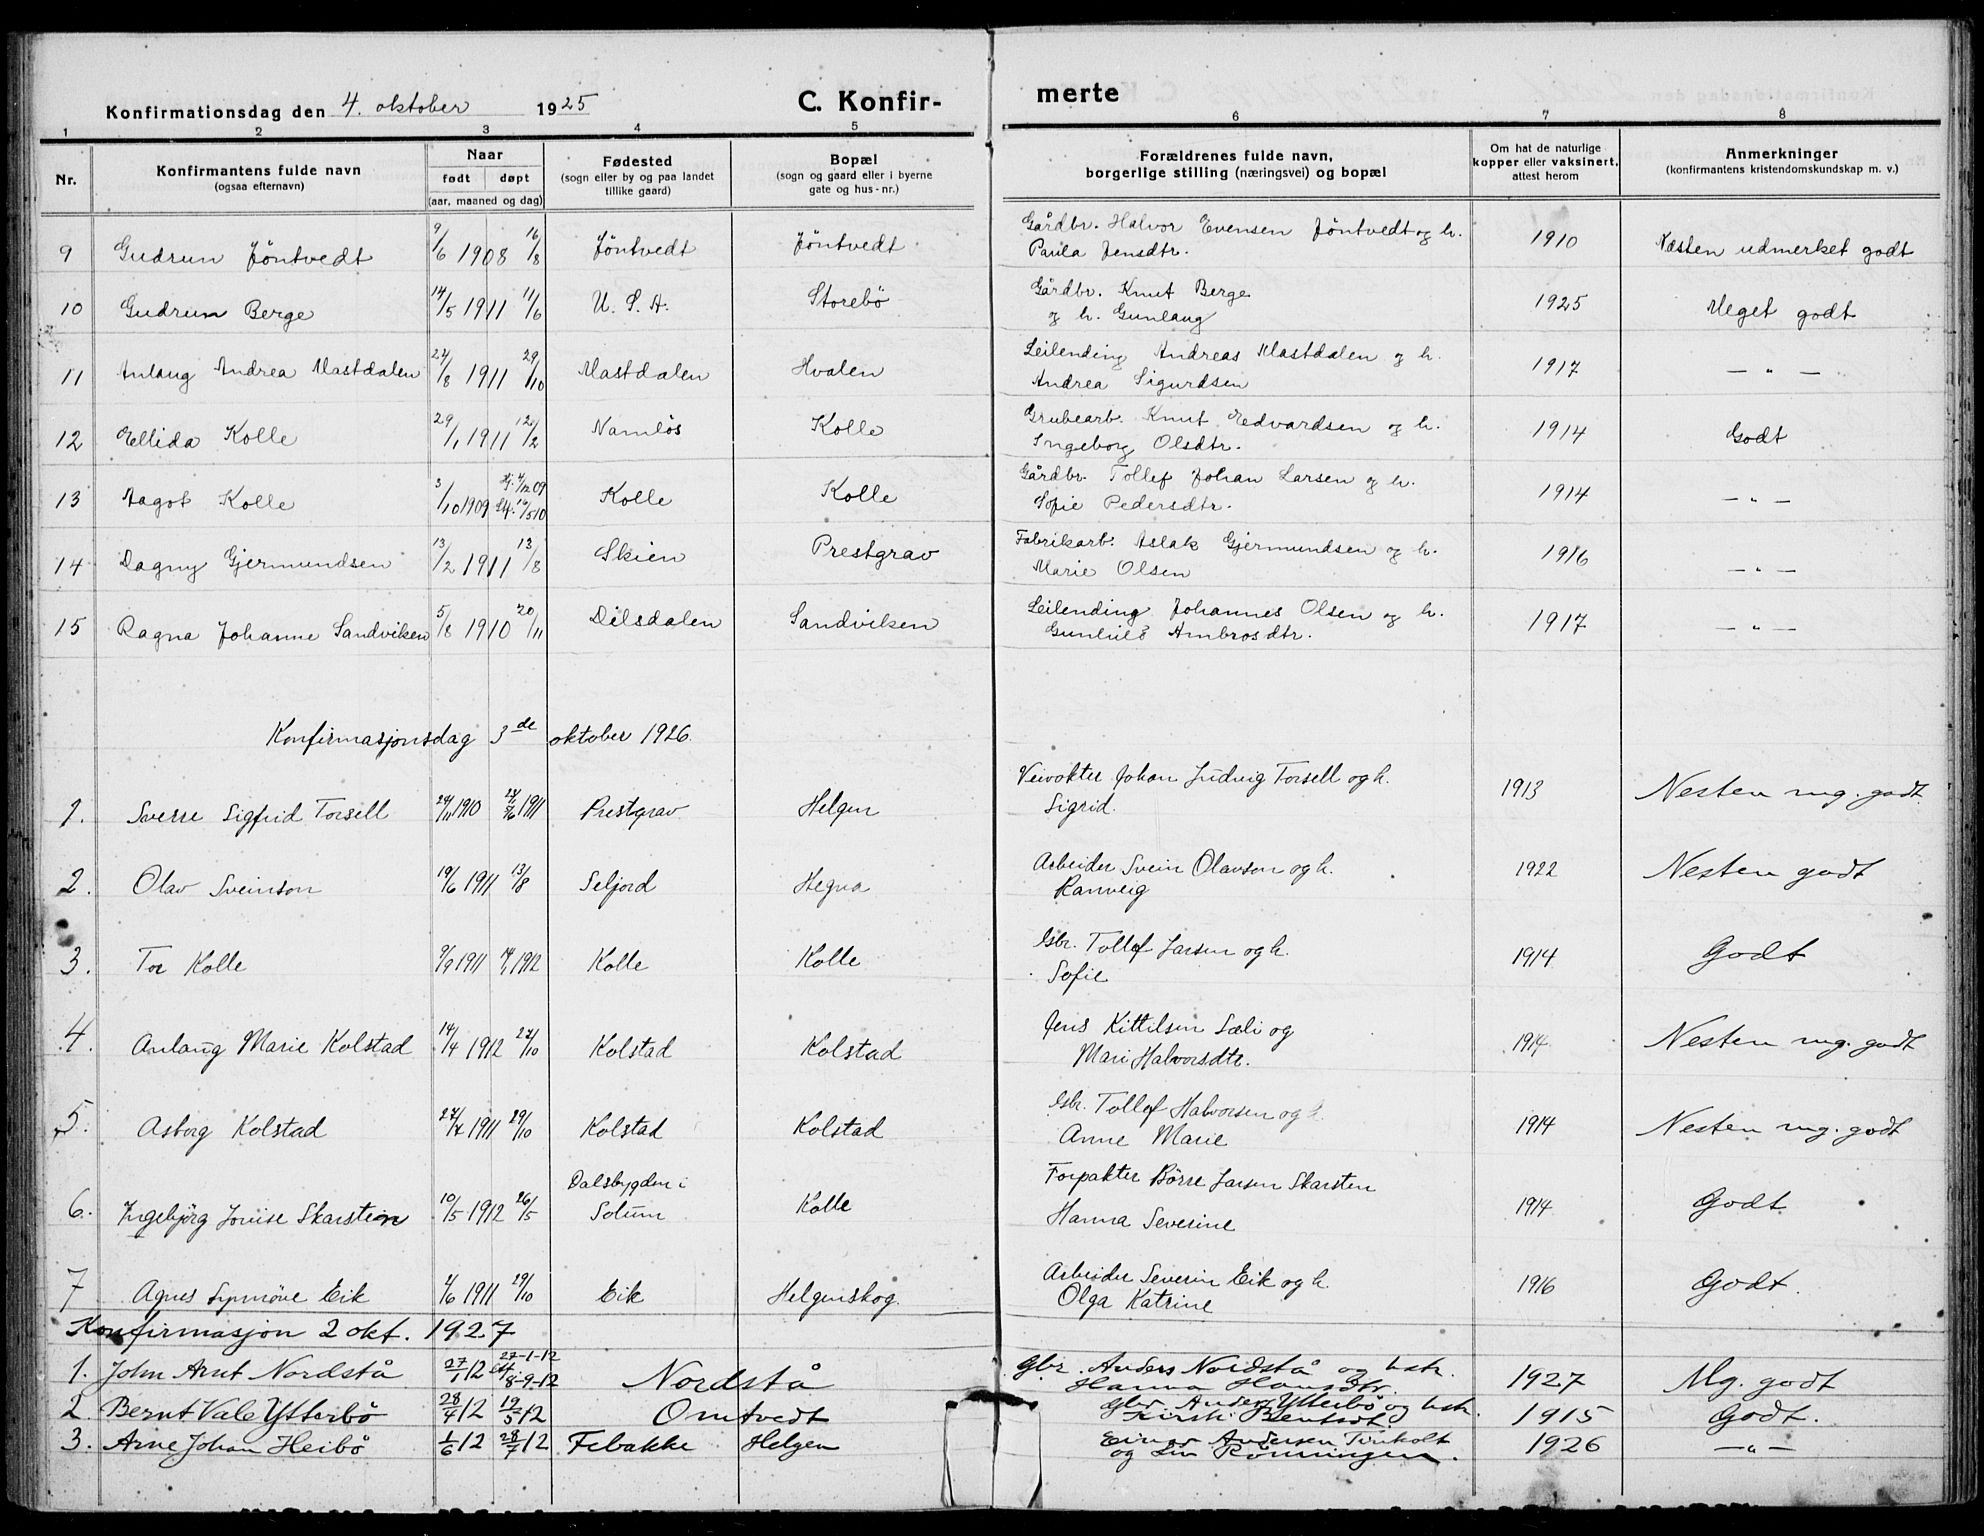 Konfirmationsdag den 4. oktober 1925 C. Konfir- merte
1 2 3 4 5 6 7 8
Nr. Konfirmantens fulde navn (ogsaa efternavn) Naar født døpt (aar, maaned og dag) Fødested (sogn eller by og paa landet tillike gaard) Bopæl (sogn og gaard eller i byerne gate og hus-nr.) Forældrenes fulde navn, borgerlige stilling (næringsvei) og bopæl Om hat de naturlige kopper eller vaksinert, attest herom Anmerkninger (konfirmantens kristendomskundskap m. v.)
9 Gudrun Jöntvedt 9/6 1908 16/8 Jöntvedt Jöntvedt Gårdbr. Halvor Evensen Jöntvedt og h. 1910 Næsten udmerket godt
Paula Jensdtr.
10 Gudrun Berge 14/5 1911 11/6 U. S. A. Storebö Gårdbr. Knut Berge 1925 Meget godt
og h. Gunlaug
11 Anlaug Andrea Mastdalen 24/8 1911 29/10 Mastdalen Hvalen Leilending Andreas Mastdalen og h. 1917 — " —
Andrea Sigurdsen
12 Ellida Kolle 29/1 1911 12/2 Namlös Kolle Grubearb. Knut Edvardsen og h. 1914 Godt
Ingeborg Olsdtr.
13 Aagot Kolle 3/10 1909 Kolle Kolle Gårdbr. Tollef Johan Larsen og h. 1914 — " —
Sofie Pedersdtr.
14 Dagny Gjermundsen 13/2 1911 13/8 Skien Prestgrav Fabrikarb. Aslak Gjermundsen og h. 1916 — " —
Marie Olsen
15 Ragna Johanne Sandviken 5/8 1910 20/11 Dilsdalen Sandviken Leilending Johannes Olsen og h. 1917 — " —
Gunhild Ambrosdtr.
Konfirmasjonsdag 3de oktober 1926.
1. Sverre Sigfrid Torsell 24/11 1910 1911 Prestgrav Helgen Veivokter Johan Ludvig Torsell og h. 1913 Nesten mg. godt.
Sigrid.
2. Olav Sveinson 19/6 1911 13/8 Seljord Hegna Arbeider Svein Olavson og h. 1922 Nesten godt
Ranveig
3. Tor Kolle 9/9 1911 14/1 1912 Kolle Kolle Gbr. Tollef Larsen og h. 1914 Godt
Sofie
4. Anlaug Marie Kolstad 14/4 1912 27/10 Kolstad Kolstad Jens Kittilsen Sæli og 1914 Nesten mg. godt
Mari Halvorsdtr.
5. Asborg Kolstad 1911 29/10 Kolstad Kolstad Gbr. Tollef Halvorsen og h. 1914 Nesten mg. godt
Anne Marie
6. Ingebjörg Lovise Skarstein 10/5 1912 26/5 Dalsbygden i Solum Kolle Forpakter Börre Larsen Skarsten 1914 Godt
Hanna Severine
7 Agnes Synnöve Eik 4/6 1911 29/10 Eik Helgenskog. Arbeider Severin Eik og h. 1916 Godt.
Olga Katrine
Konfirmasjon 2 okt. 1927
1. John Arnt Nordstå 27/1 12 27-1-12 8-9-12 Nordstå Gbr. Anders Nordstå og hstr. 1927 Mg. godt
Hanna Hansdtr.
2. Bernt Vale Ytterbö 28/4 12 19/5 12 Omtvedt Gbr. Anders Ytterbö og hstr. 1915 Godt.
Kirsti Bentsdt.
3. Arne Johan Heibö 1/6 12 28/7 12 Febakke Helgen Einar Andersen Tinholt 1926 — " —
og Lin Rönningen.